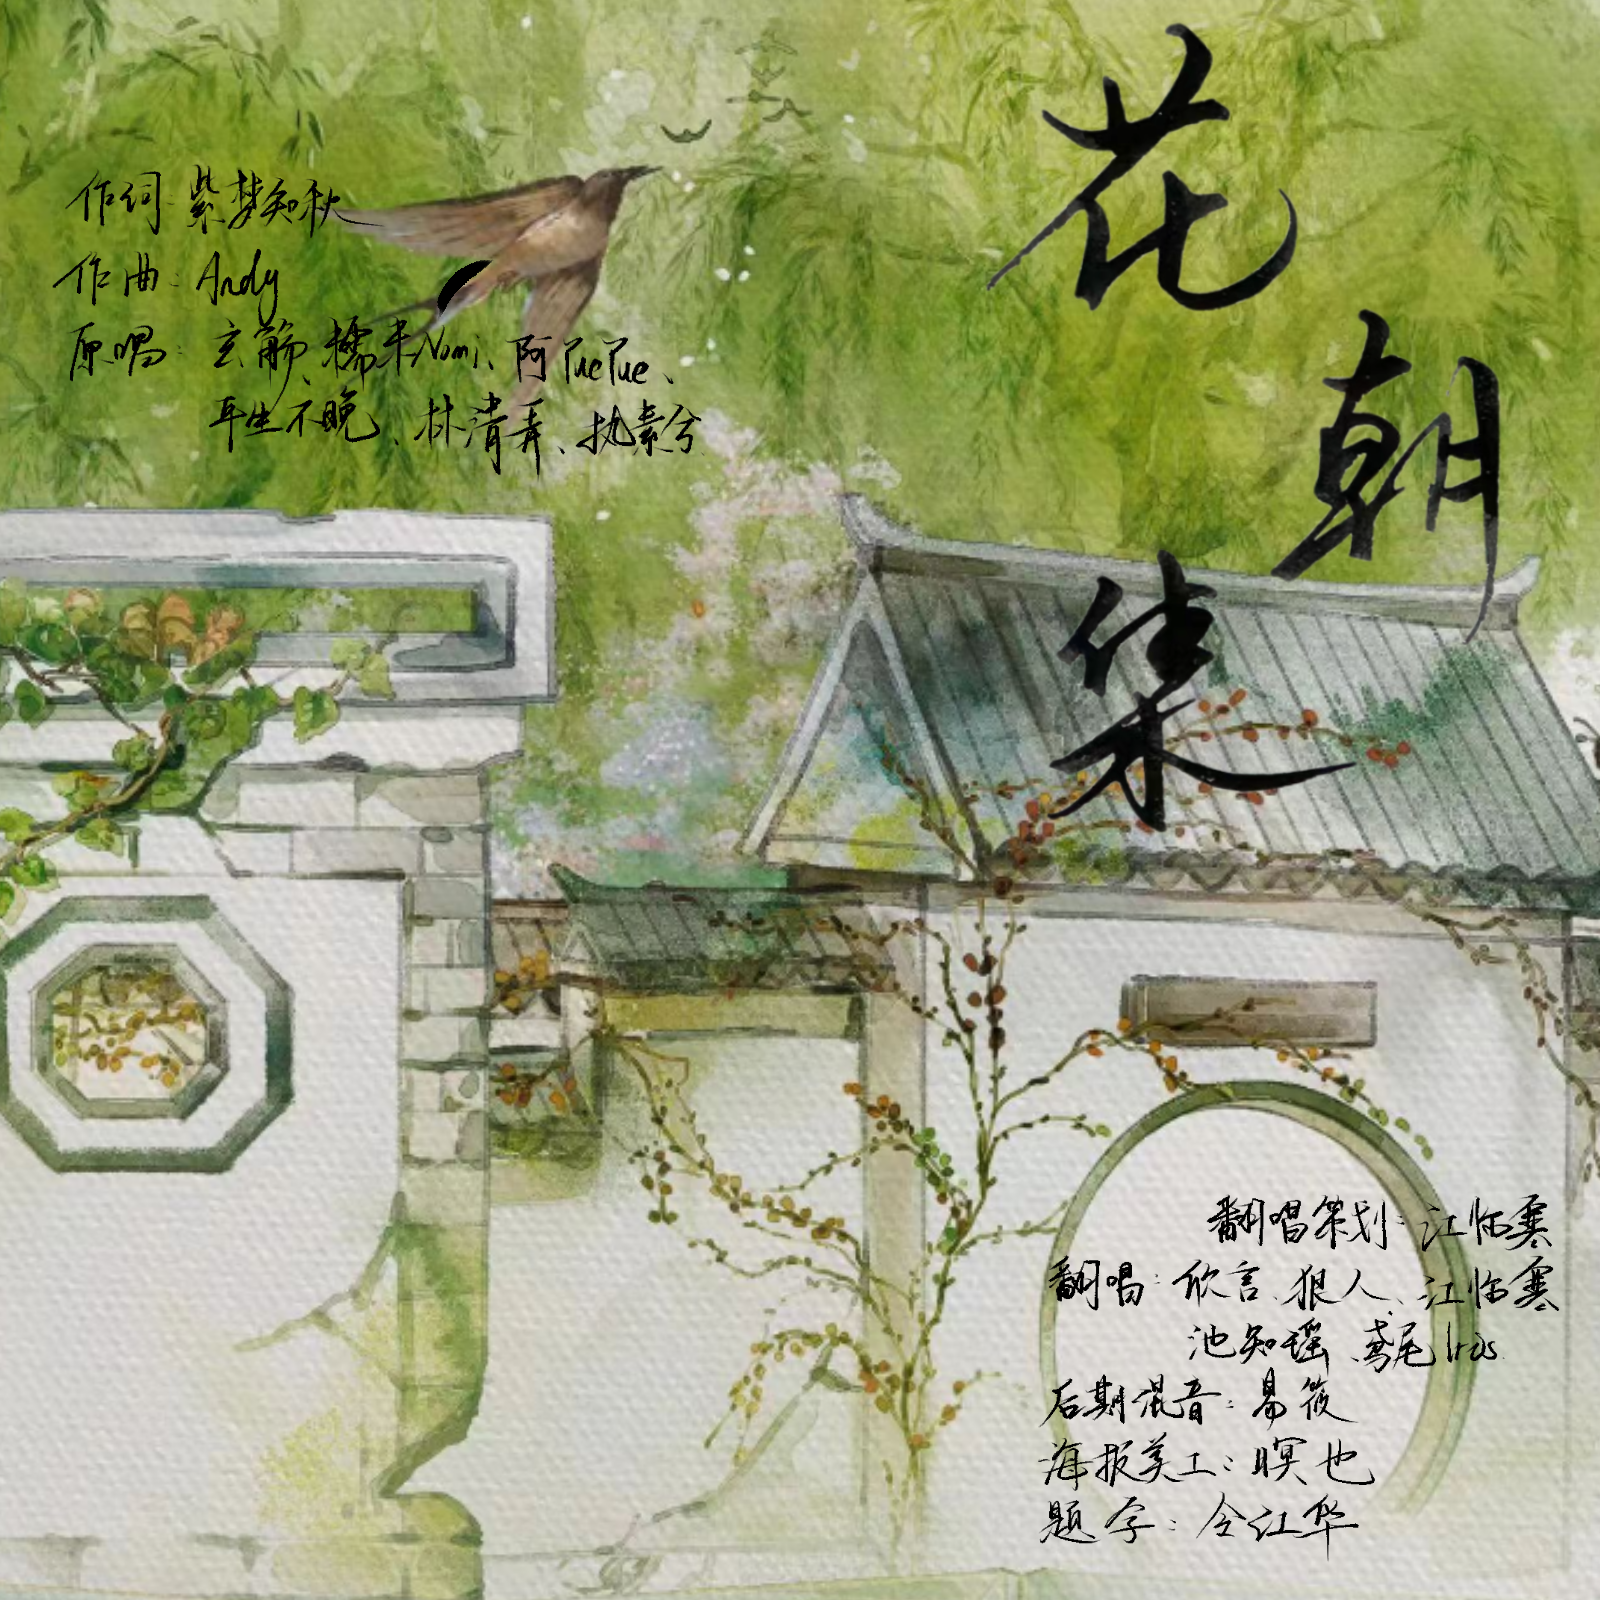 花朝集
作词：紫梦知秋
作曲：Andy
原唱：玄觞、糯米Nomi、阿YueYue、
平生不晚、林清弄、执素兮
翻唱策划：江临寒
翻唱：欣言、狠人、江临寒
池知瑶、鸢尾Iris
后期混音：易筱
海报美工：暝也
题字：令江华